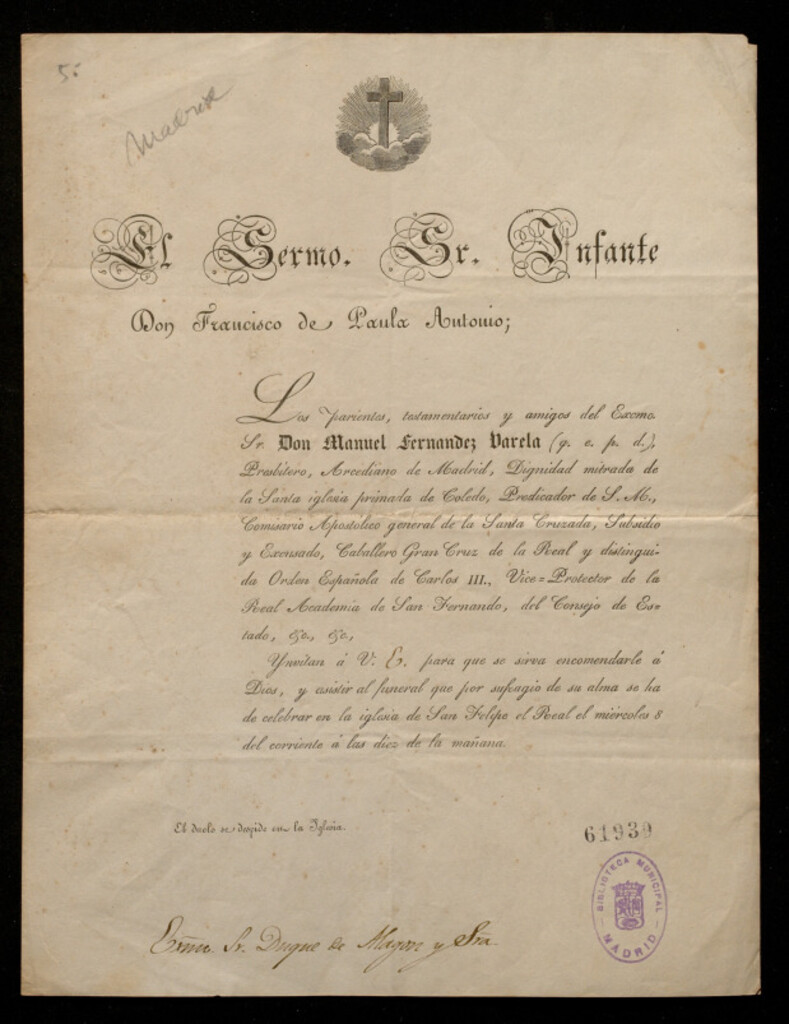 5
Madrid
El Sermo. Sr. Infante
Don Francisco de Paula Antonio;
Los parientes, testamentarios y amigos del Excmo.
Sr. Don Manuel Fernandez Varela (q. e. p. d.),
Presbítero, Arcediano de Madrid, Dignidad mitrada de
la Santa iglesia primada de Toledo, Predicador de S. M.,
Comisario Apostólico general de la Santa Cruzada, Subsidio
y Excusado, Caballero Gran Cruz de la Real y distingui-
da Orden Española de Carlos III., Vice=Protector de la
Real Academia de San Fernando, del Consejo de Es-
tado, &c., &c.,
Ynvitan á V. E. para que se sirva encomendarle á
Dios, y asistir al funeral que por sufragio de su alma se ha
de celebrar en la iglesia de San Felipe el Real el miércoles 8
del corriente á las diez de la mañana.
El duelo se despide en la Iglesia.
61939
BIBLIOTECA MUNICIPAL
MADRID
Exmo. Sr. Duque de Alagon y Sra